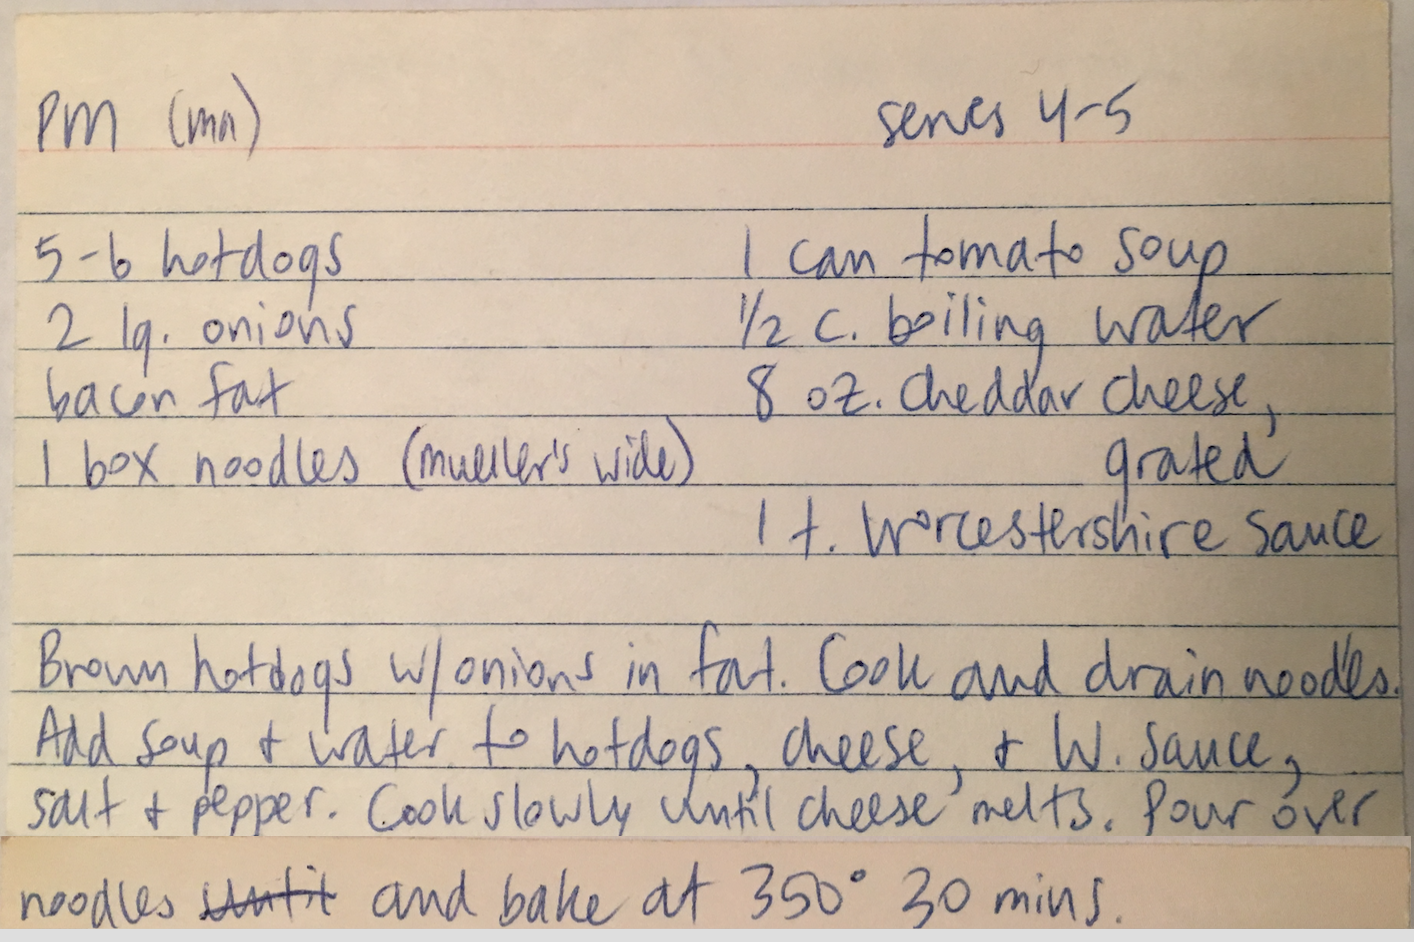 PM (mn) serves 4-5
5-6 hotdogs
2 lg. onions
bacon fat
1 box noodles (mueller's wide)
1 can tomato soup
1/2 c. boiling water
8 oz. cheddar cheese,
grated
1 t. Worcestershire sauce
Brown hotdogs w/onions in fat. Cook and drain noodles.
Add soup & water to hotdogs, cheese, & W. sauce,
salt & pepper. Cook slowly until cheese melts. Pour over
noodles until and bake at 350° 30 mins.